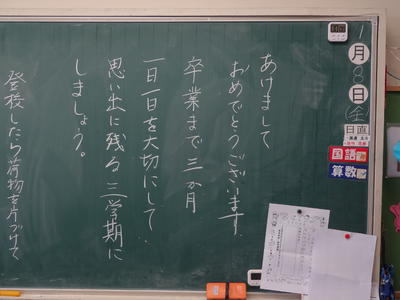 1月8日(金)
日直
国語
算数
あけまして
おめでとうございます。
卒業まで三か月
一日一日を大切にして
思い出に残る三学期に
しましょう。
登校したら荷物を片づけて